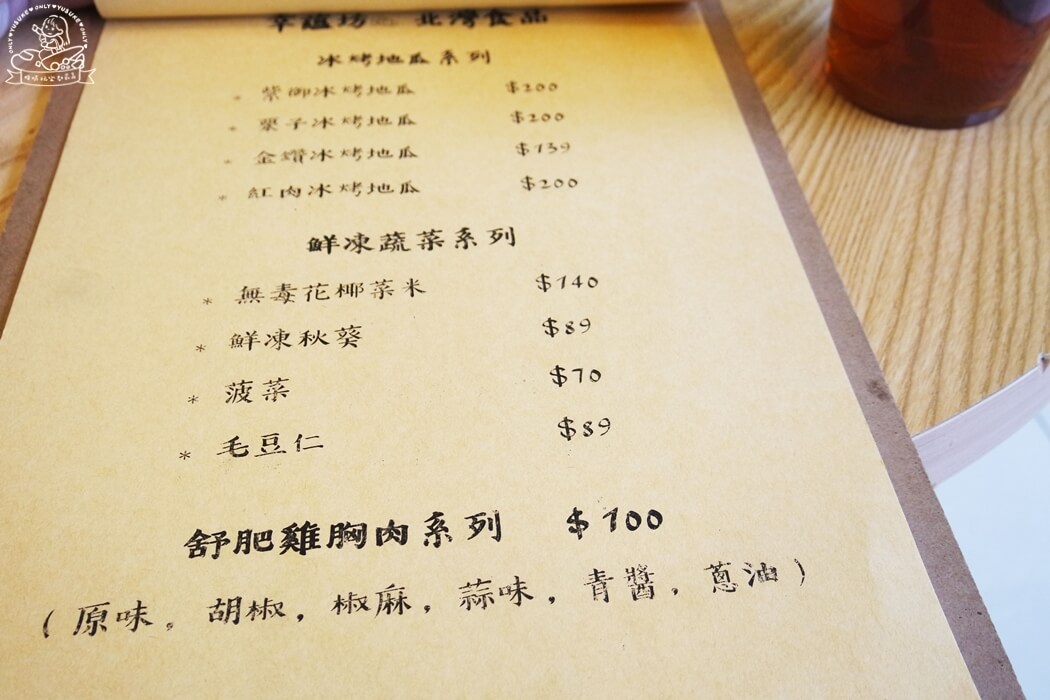 幸蘊坊 北灣食品
冰烤地瓜系列
* 紫御冰烤地瓜 $200
* 栗子冰烤地瓜 $200
* 金鑽冰烤地瓜 $139
* 紅肉冰烤地瓜 $200
鮮凍蔬菜系列
* 無毒花椰菜米 $140
* 鮮凍秋葵 $89
* 菠菜 $70
* 毛豆仁 $89
舒肥雞胸肉系列 $100
(原味, 胡椒, 椒麻, 蒜味, 青醬, 蔥油)